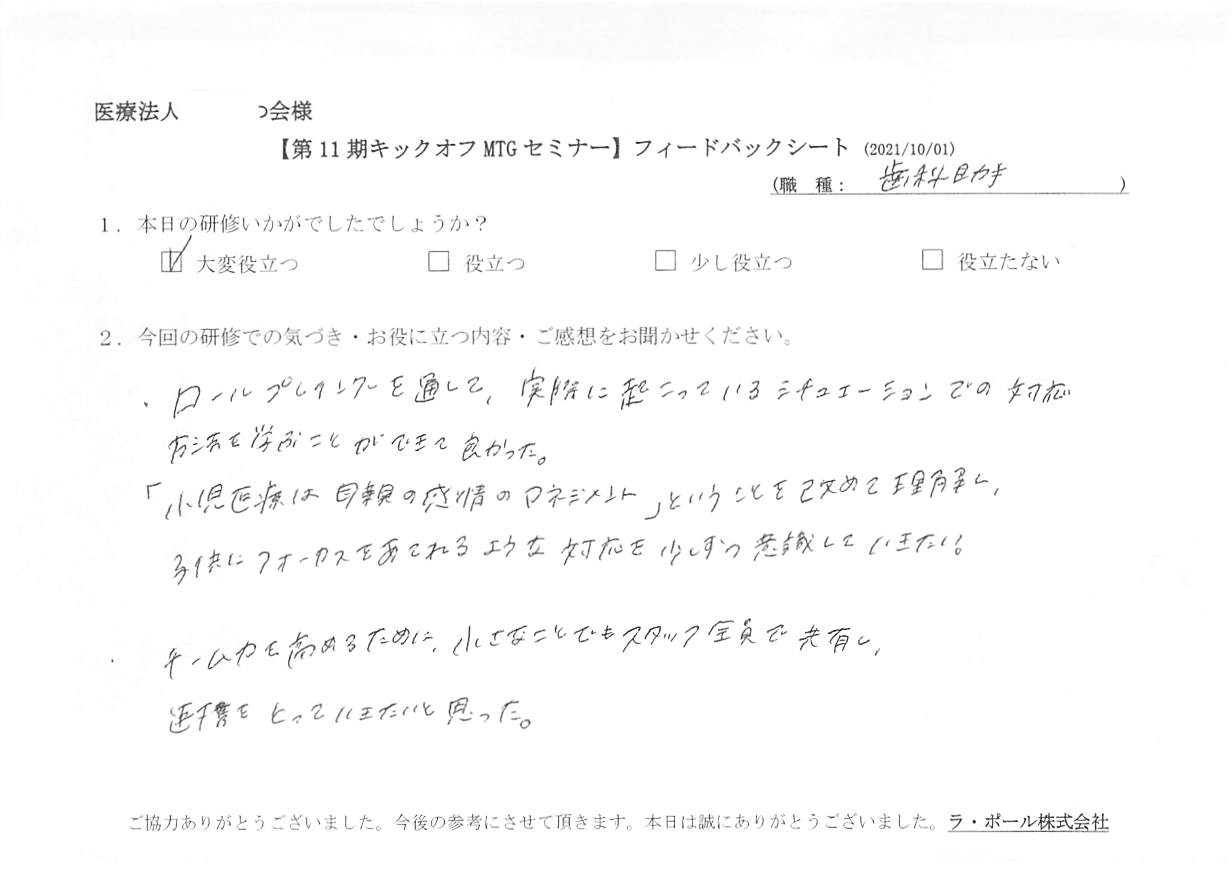 医療法人 つ会様
【第11期キックオフMTGセミナー】フィードバックシート (2021/10/01)
(職 種: 歯科助手 )
1. 本日の研修いかがでしたでしょうか？
☑ 大変役立つ □ 役立つ □ 少し役立つ □ 役立たない
2. 今回の研修での気づき・お役に立つ内容・ご感想をお聞かせください。
・ロールプレイングを通して、実際に起こっているシチュエーションでの対応
方法を学ぶことができて良かった。
「小児医療は母親の感情のマネジメント」ということを改めて理解し、
子供にフォーカスをあてれるような対応を少しずつ意識していきたい。
・チーム力を高めるために、小さなことでもスタッフ全員で共有し、
連携をとっていきたいと思った。
ご協力ありがとうございました。今後の参考にさせて頂きます。本日は誠にありがとうございました。ラ・ポール株式会社